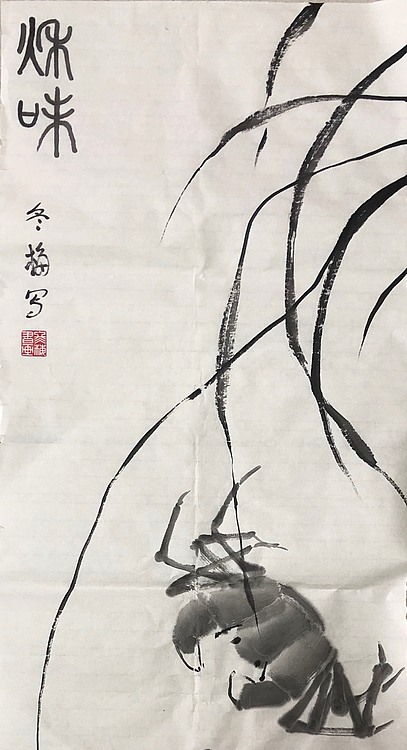 秌味
冬梅写